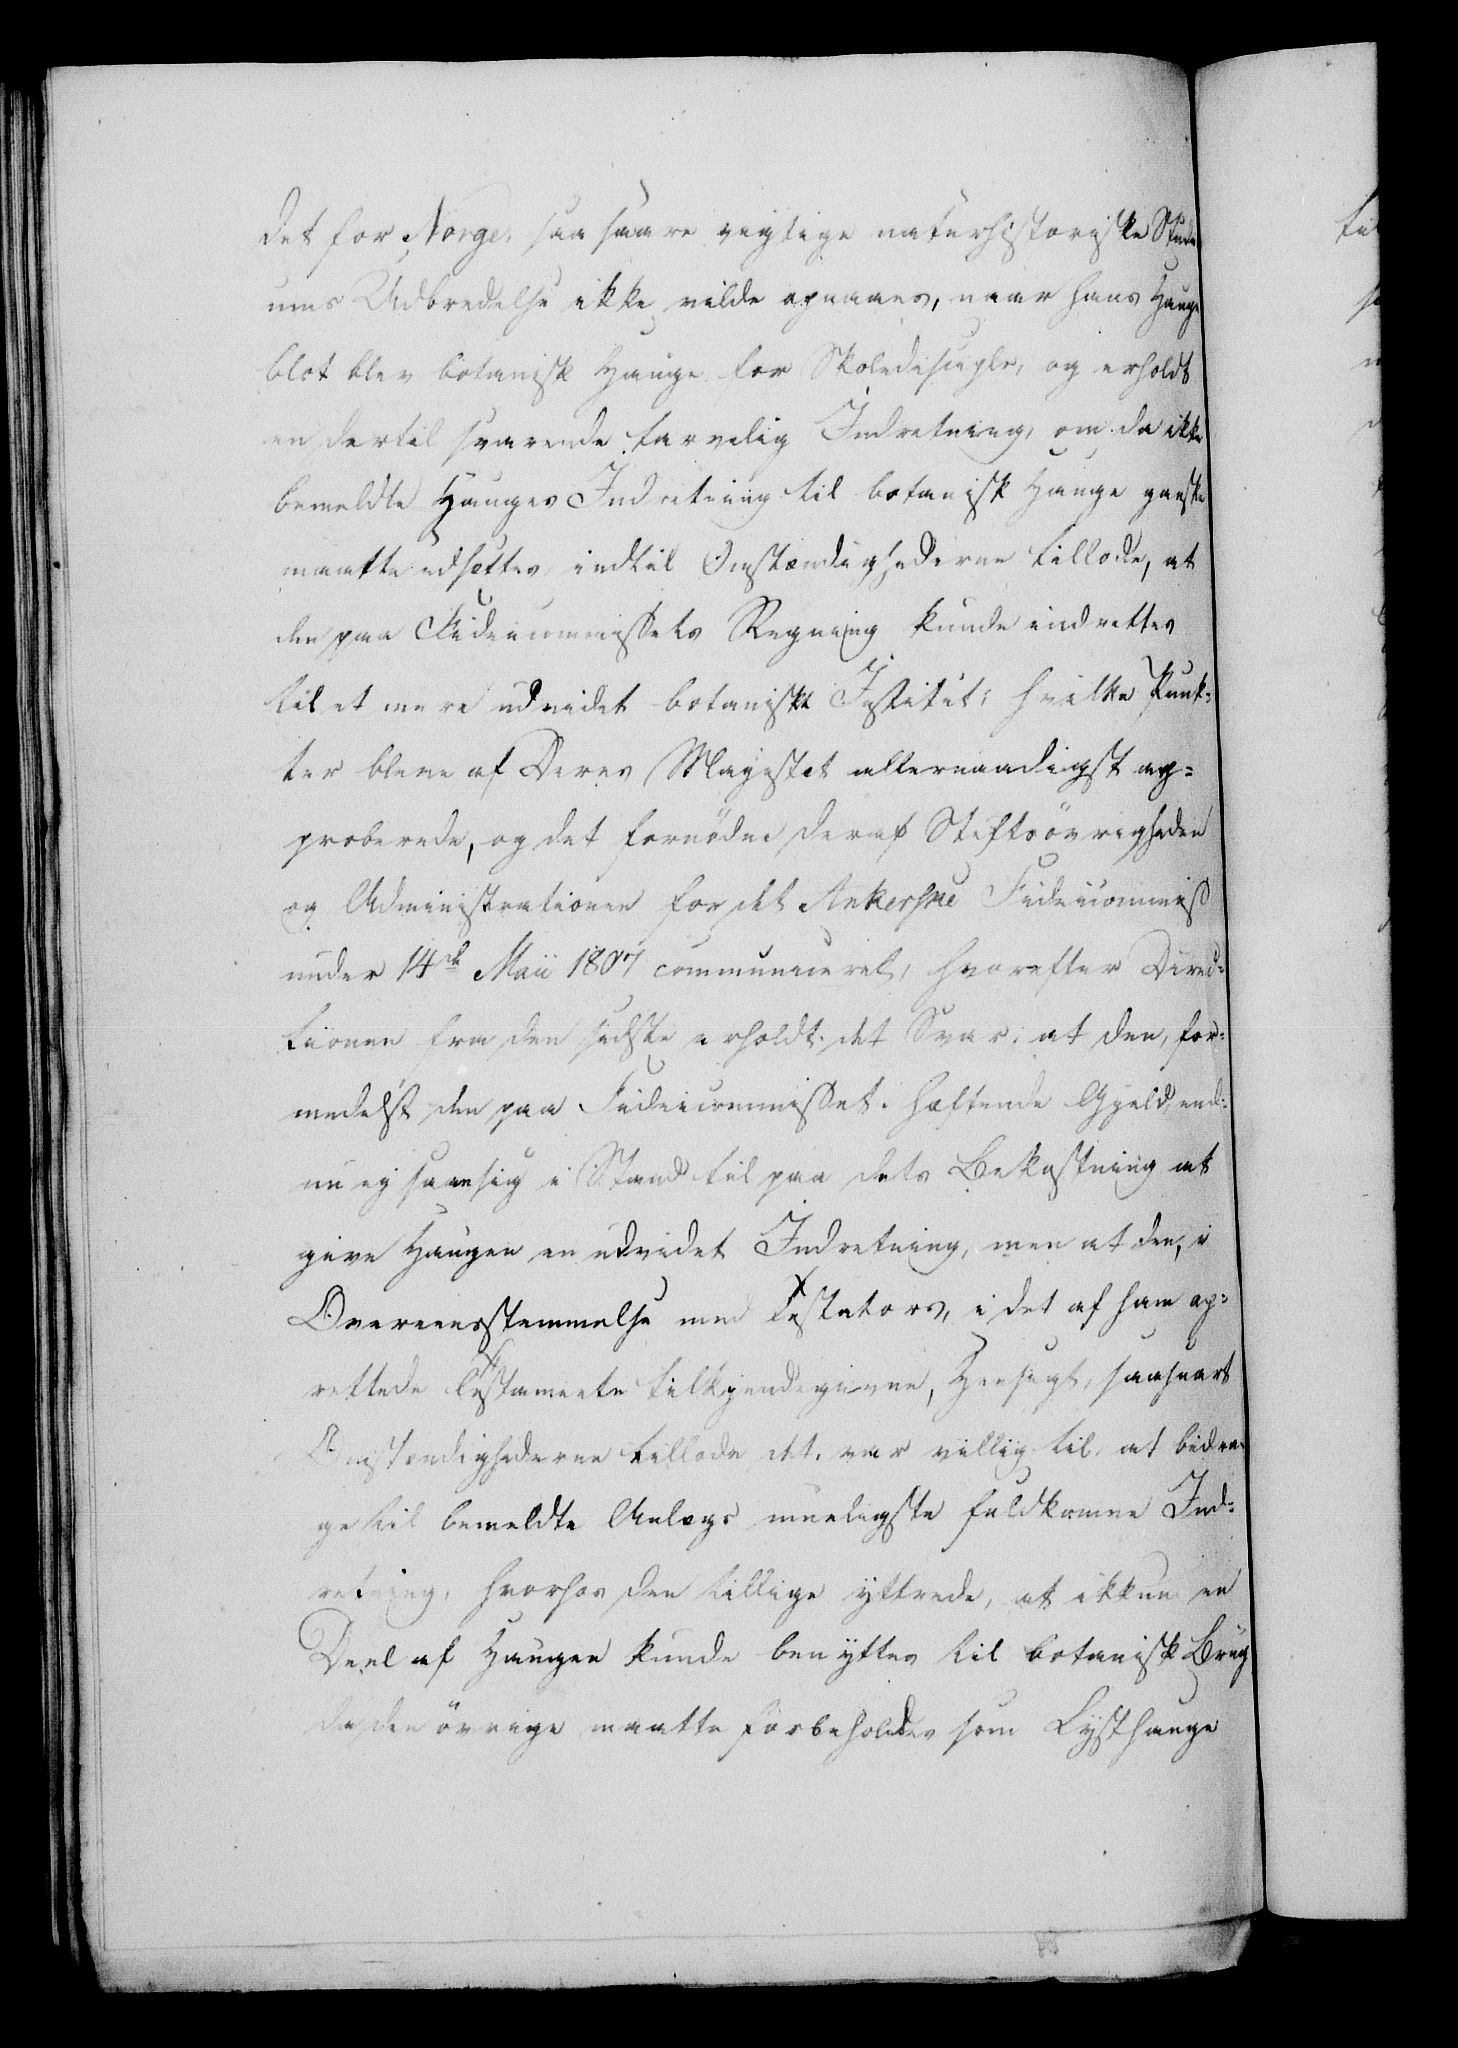 det for Norge, saa saare vigtige naturhistoriske Studi
ums Udbredelse ikke vilde opnaaes, naar hans Hauge
blot blev botanisk Hauge for Skoledisciple, og erholdt
en dertil svarende tarvelig Indretning, om da ikke
bemeldte Hauges Indretning til botanisk Hauge ganske
maatte udsættes, indtil Omstændighederne tillode, at
den paa Fideicommissets Regning kunde indrettes
til et mere udvidet botanisk Institut; hvilke Punk-
ter bleve af Deres Majestet allernaadigst ap=
proberede, og det fornödne deraf Stiftsövrigheden
og Administrationen for det Ankerske Fideicommis
under 14de Maii 1807 communiceret, hvorefter Direc-
tionen fra den sidste erholdt det Svar: at den, for-
medelst den paa Fideicommisset hæftende Gjæld, end-
nu ej saae sig i Stand til paa dets Bekostning at
give Haugen en udvidet Indretning, men at den, i
Overeensstemmelse med Testators, i det af ham op-
rettede Testamente tilkjendegivne, Hensigt, saasnart
Omstændighederne tillode det, var villig til, at bidra-
ge til bemeldte Anlægs mueligste fuldkomne Ind-
retning, hvorhos den tillige yttrede, at ikkun en
Deel af Haugen kunde benyttes til botanisk Brug
da den övrige maatte forbeholdes som Lysthauge